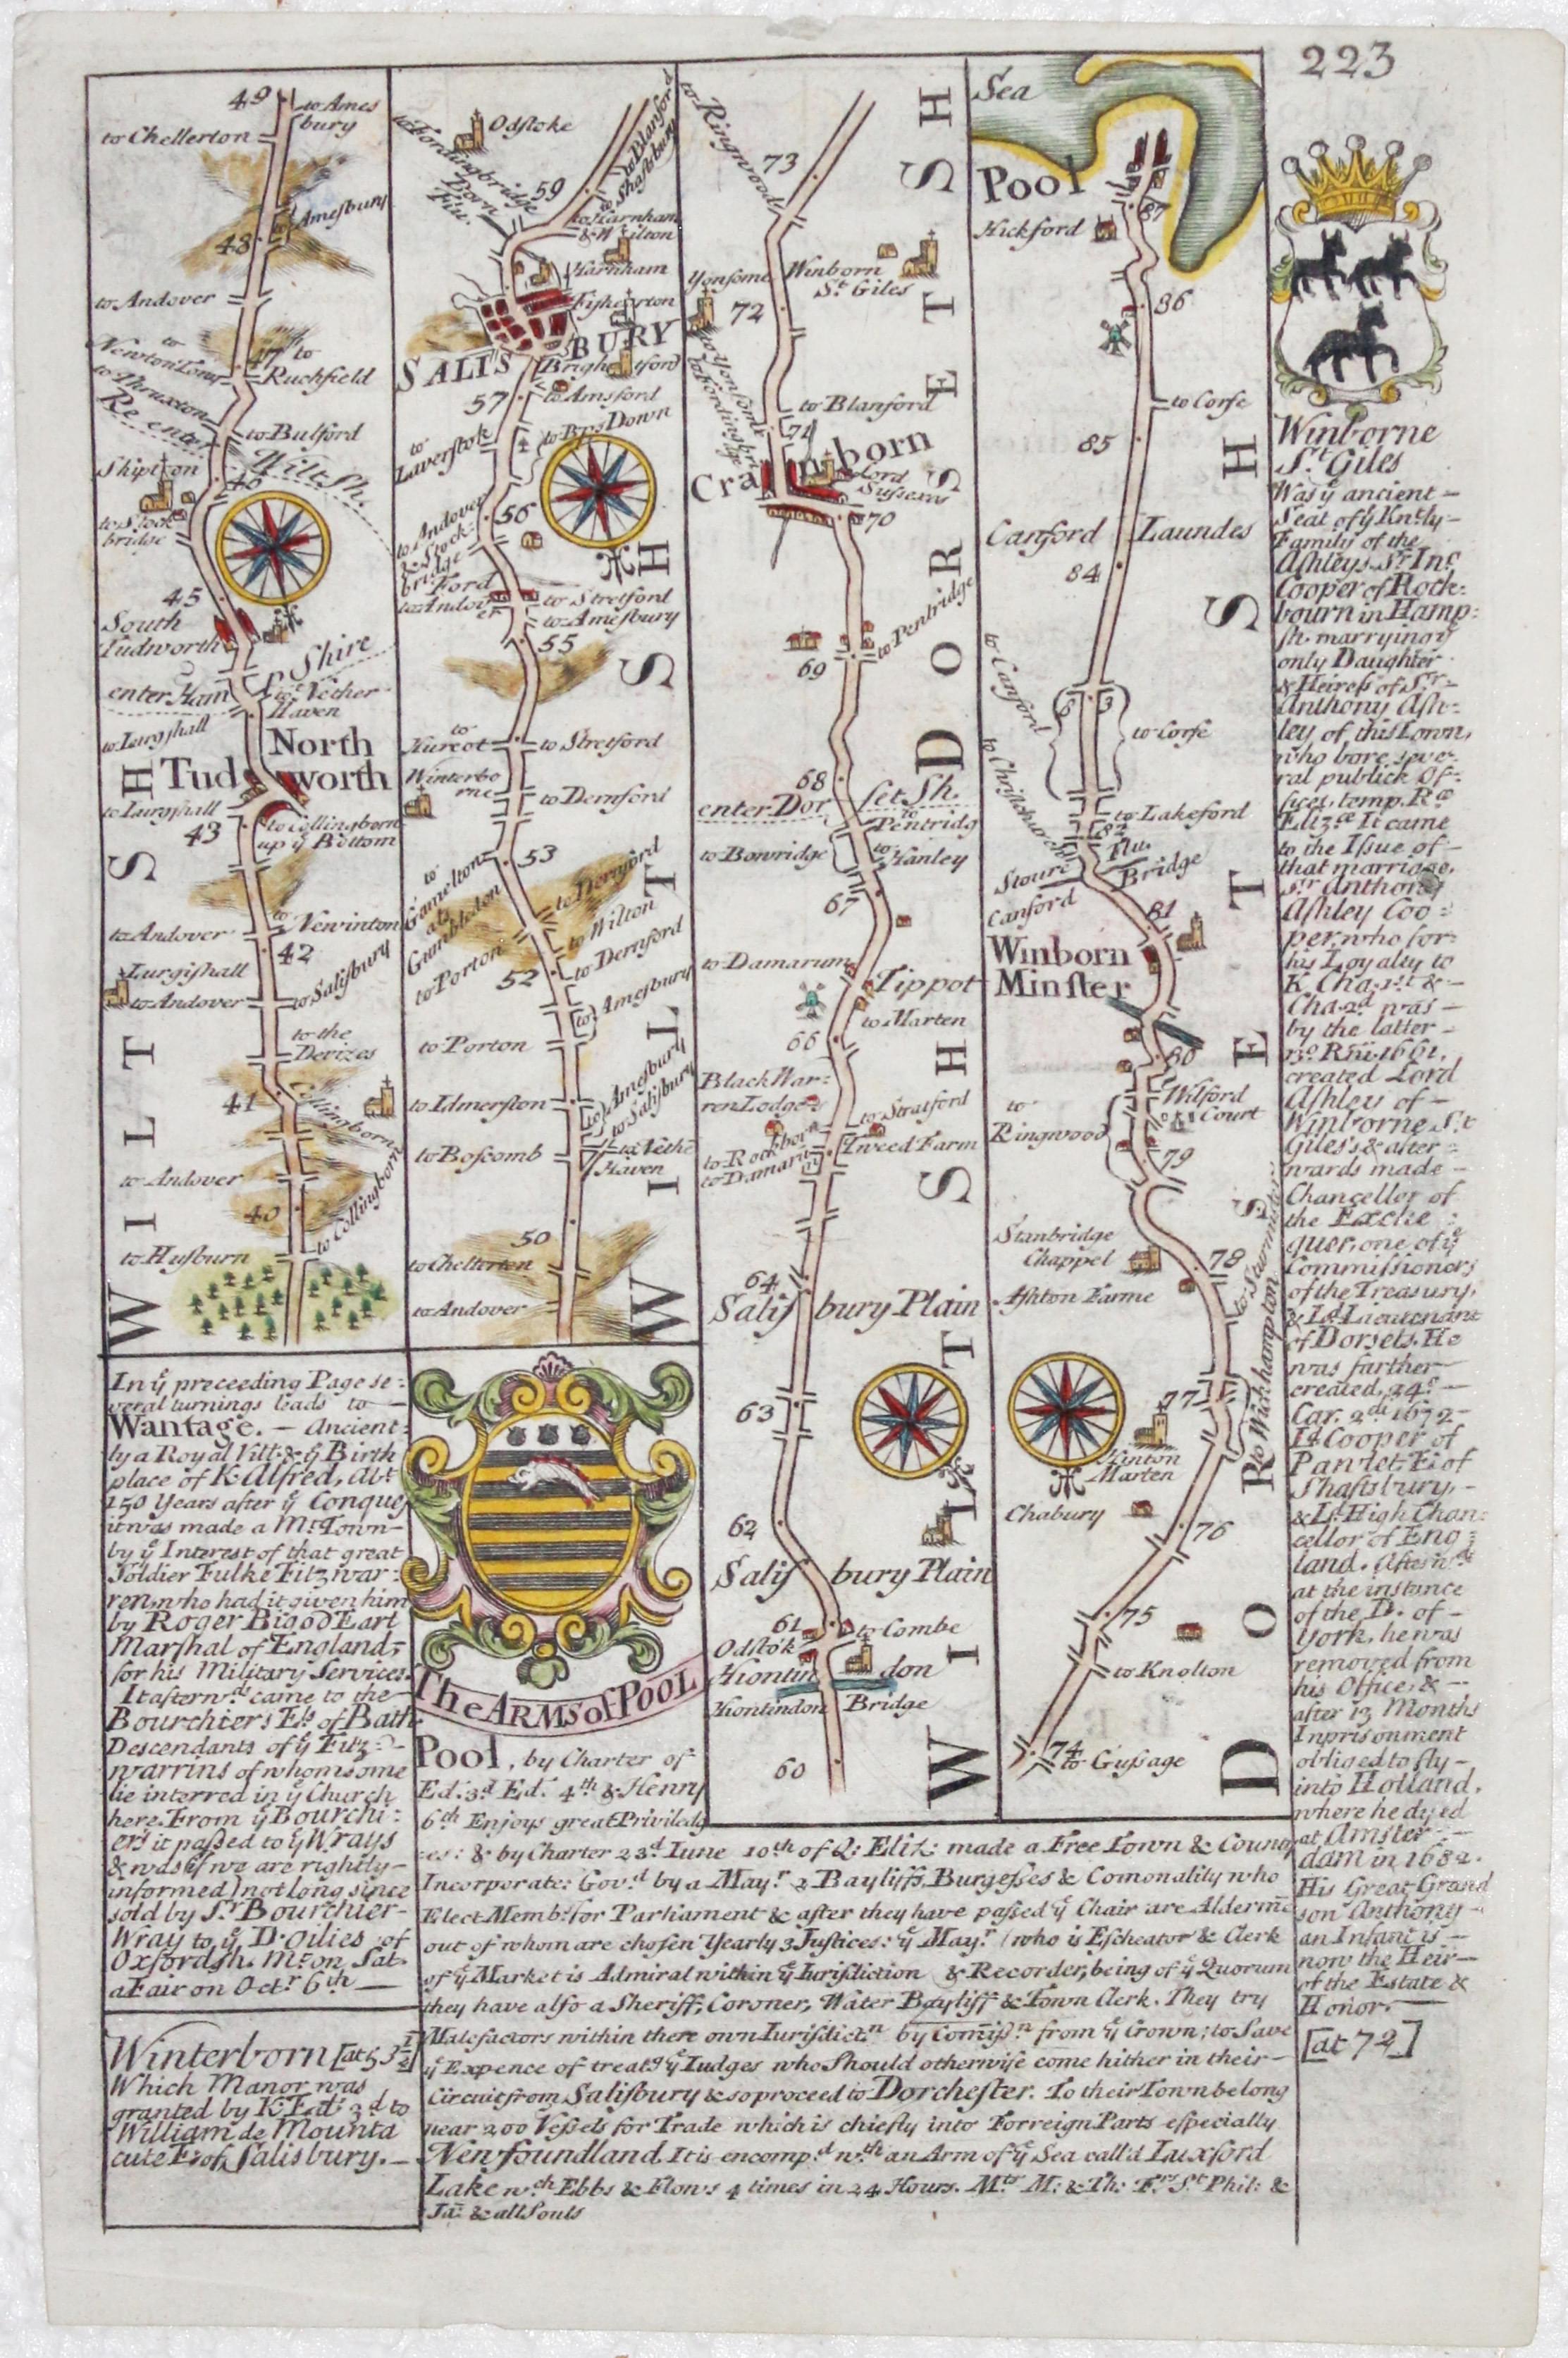 223
49
to Ames
bury
to Chellerton
Amesbury
48
to Andover
to
Newton Tony
47
to
Ruchfield
to Thruxton
Re enter
Wilt Sh.
to Bulford
Shipton
46
to Stock
bridge
45
South
Tudworth
enter Ham
P Shire
to Nether
Haven
to Lurgshall
North
Tud worth
to Lurgshall
to Collingborn
up ye Bottom
43
to
Newinton
to Andover
42
Lurgishall
to Andover
to Salisbury
to the
Devizes
41
Collingborne
to Andover
40
to Collingborn
to Husburn
WILTSH
Odstoke
to Fordingbridge
Born
Flu.
59
to Blanford
to Shaftsbury
to Harnham
& Wilton
Harnham
Fisherton
SALIS BURY
Brighe lford
57
to Amsford
to Brs Down
to
Laverstok
to Andover
& Stock
bridge
56
Ford
to Andov
er
to Stretford
to Amesbury
55
to
Hurcot
to Stretford
Winterbo
rne
to Dernford
to
Gamelton
als
Gumbledon
53
to Dernford
to Wilton
to Porton
52
to Dernford
to Amesbury
to Porton
to Amesbury
to Salisbury
to Idmerston
to Boscomb
to Nethe
Haven
50
to Chelterton
to Andover
WILTSH
to Ringwood
73
Yonsome
Winborn
St. Giles
72
to Yonsome
to Fordingbri
dge
to Blanford
71
Cra nborn
Lord
Sussexes
70
to Pentridge
69
68
enter Dor
set Sh.
to
Pentridg
to Bowridge
to
Hanley
67
to Damarum
Tippot
to Marten
66
Black War:
ren Lodge
to Stratford
to Rockborn
to Damarum
Tweed Farm
64
Salis bury Plain
63
62
Salis bury Plain
61
Odstok
to Combe
Hontin don
Hontindon Bridge
60
DORSETSH
WILTSH
Sea
Pool
87
Hickford
86
to Corfe
85
Canford Laundes
84
to Canford
6 3
to Corfe
to Christchurch
to Lakeford
82
Flu.
Bridge
Stoure
Canford
81
Winborn
Minster
80
Wilford
Court
to
Ringwood
79
Stanbridge
Chappel
78
Ashton Farme
to Sturminster
to Wickhampton
77
Hinton
Marten
Chabury
76
75
to Knolton
74
to Gussage
DORSETSH
Winborne
St. Giles
Was ye ancient -
Seat of ye Kntly -
Family of the
Ashleys. Sr. Ino
Cooper of Rock:
bourn in Hamp:
sh. marrying ye
only Daughter
& Heiress of Sr. -
Anthony Ash:
ley of this Town,
who bore seve:
ral publick Of:
fices, temp. Rae
Elizae It came
to the Issue of -
that marriage,
Sr. Anthony
Ashley Coo:
per, who for
his Loyalty to
K. Cha. 1st. & -
Cha. 2d. was -
by the latter -
13o. Rni. 1661.
created Lord
Ashley of -
Winborne St.
Giles's & after
wards made -
Chancellor of
the Exche:
quer, one of ye
Commissioners
of the Treasury,
& Ld. Lieutenant
of Dorsets. He
was farther
created, 24o -
Car. 2di 1672 -
Ld. Cooper of
Pawlet, E. of
Shaftsbury, -
& Ld. High Chan:
cellor of Eng:
land. Afterwds
at the instance
of the D. of -
York, he was
removed from
his Office, & -
after 13 Months
Inprisonment
obliged to fly -
into Holland,
where he dyed
at Amster -
dam in 1682.
His Great Grand
son Anthony -
an Infant is -
now the Heir -
of the Estate &
Honor.
[at 72]
In ye preceeding Page se:
veral turnings leads to -
Wantage. - Ancient:
ly a Royal Vill: & ye Birth
place of K. Alfred, Abt.
150 Years after ye Conques
it was made a Mt. Town -
by ye Interest of that great
Soldier Fulke Fitzwar:
ren, who had it given him
by Roger Bigod Earl
Marshal of England,
for his Military Services.
It afterwds. came to the -
Bourchiers Els. of Bath
Descendants of ye Fitz -
warrins of whom some
lie interred in ye Church
here. From ye Bourchi:
ers it passed to ye Wrays
& was (if we are rightly -
informed) not long since
sold by Sr. Bourchier -
Wray to ye D'Oilies of
Oxfordsh. Mt. on Sat.
a Fair on Octr. 6th -
Winterborn [at 53 1/2]
Which Manor was
granted by K. Ed. 3d. to
William de Mounta
cute E. of Salisbury. -
The ARMS of POOL
Pool, by Charter of
Ed. 3d. Ed. 4th & Henry
6th Enjoys great Priviledg
es: & by Charter 23d. Iune 10th of Q: Eliz: made a Free Town & County
Incorporate: Govd. by a Mayr. 2 Bayliffs, Burgesses & Comonality who
Elect Membs. for Parliament & after they have passed ye Chair are Alderme
out of whom are chosen Yearly 3 Justices: ye Mayr. (who is Escheator & Clerk
of ye Market is Admiral within ye Iurisdiction & Recorder, being of ye Quorum
they have also a Sheriff, Coroner, Water Bayliff & Town Clerk. They try
Malefactors within there own Iurisdictn by Comissn from ye Crown; to Save
ye Expence of treatg ye Iudges who Should otherwise come hither in their -
Circuit from Salisbury & so proceed to Dorchester. To their Town belong
near 200 Vessels for Trade which is chiefly into Forreign Parts especially
Newfoundland. It is encompd. wth an Arm of ye Sea call'd Luxford
Lake wch Ebbs & Flows 4 times in 24 Hours. Mts M: & Th: Frs. St. Phil: &
Ja: & all Souls